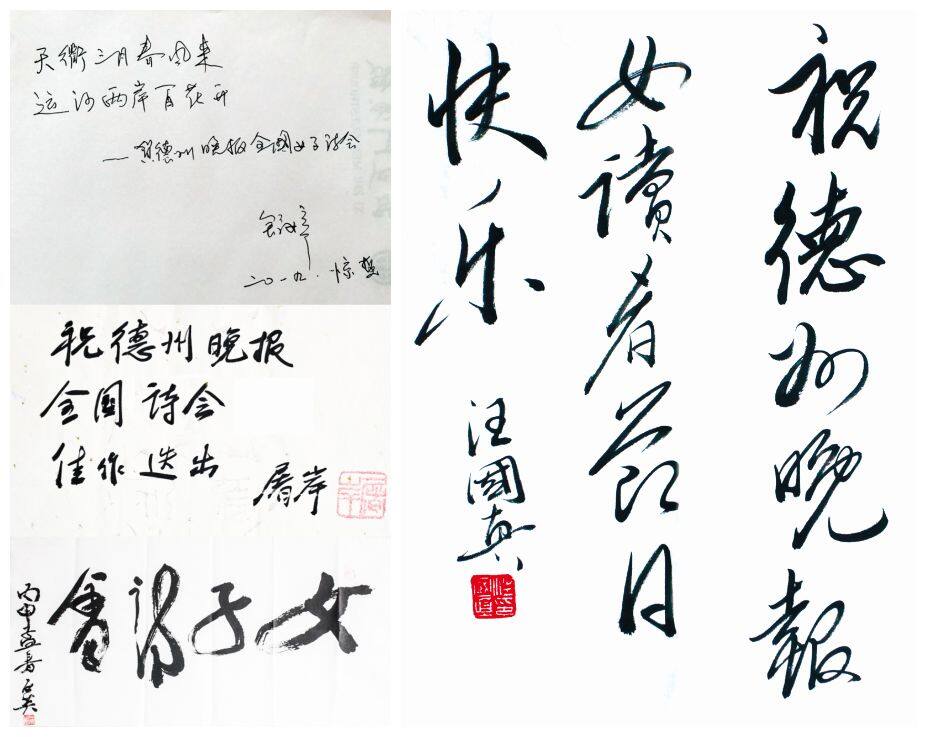 天衢三月春风来
运河两岸百花开
—贺德州晚报全国女子诗会
二〇一九.惊蛰
祝德州晚报
全國诗会
佳作迭出
屠岸
女子诗會
丙申孟春
祝德州晚報
女讀者节日
快乐
汪國真